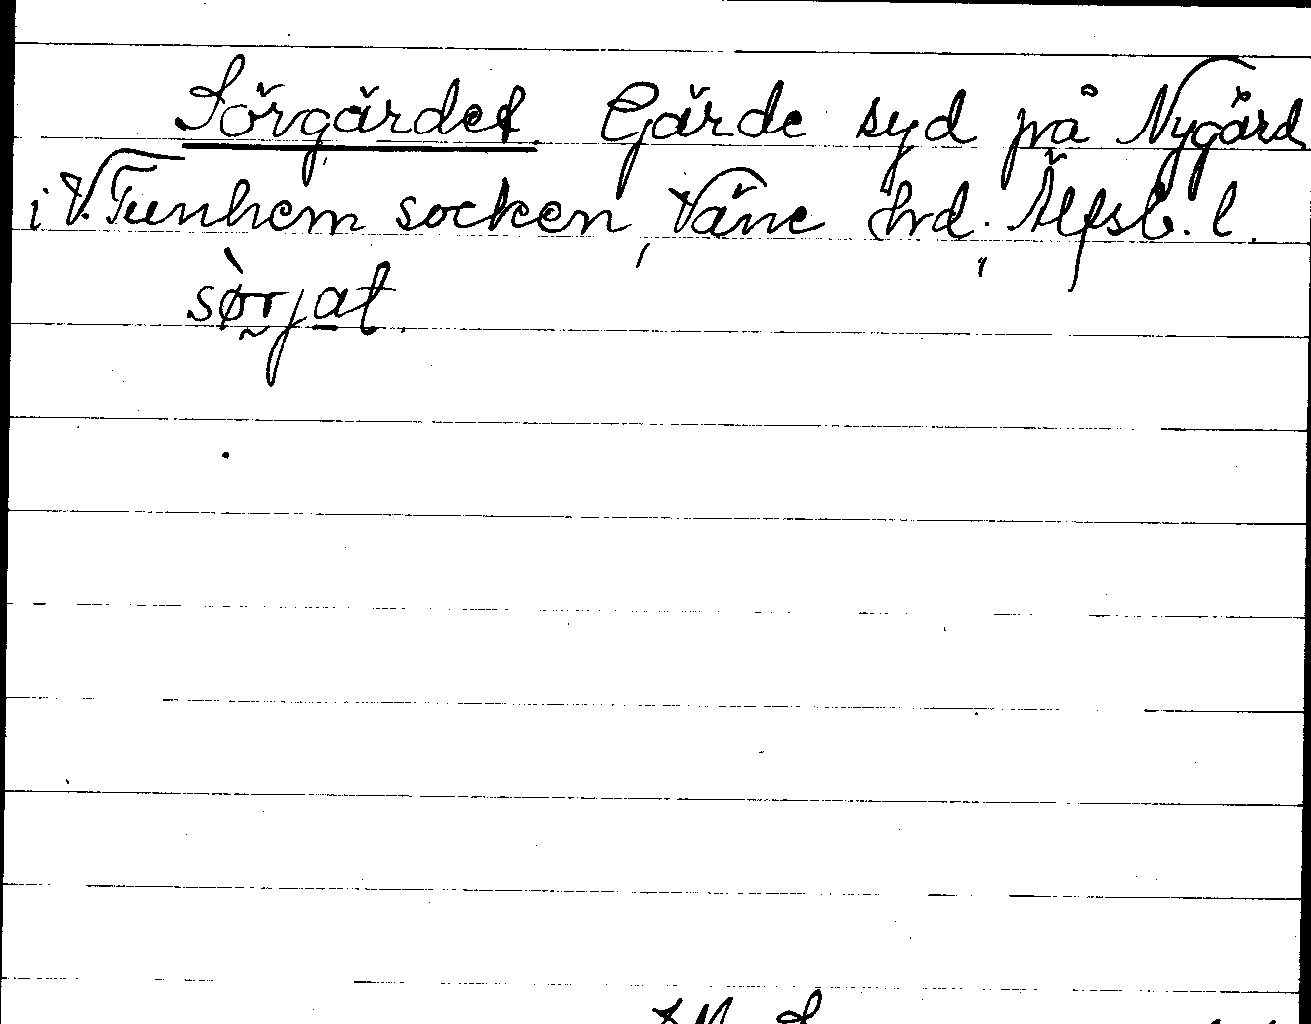 Sörgärdet. Gärde syd på Nygård
i V. Tunhem socken, Väne hrd. Älfsb. l.
sørjat.